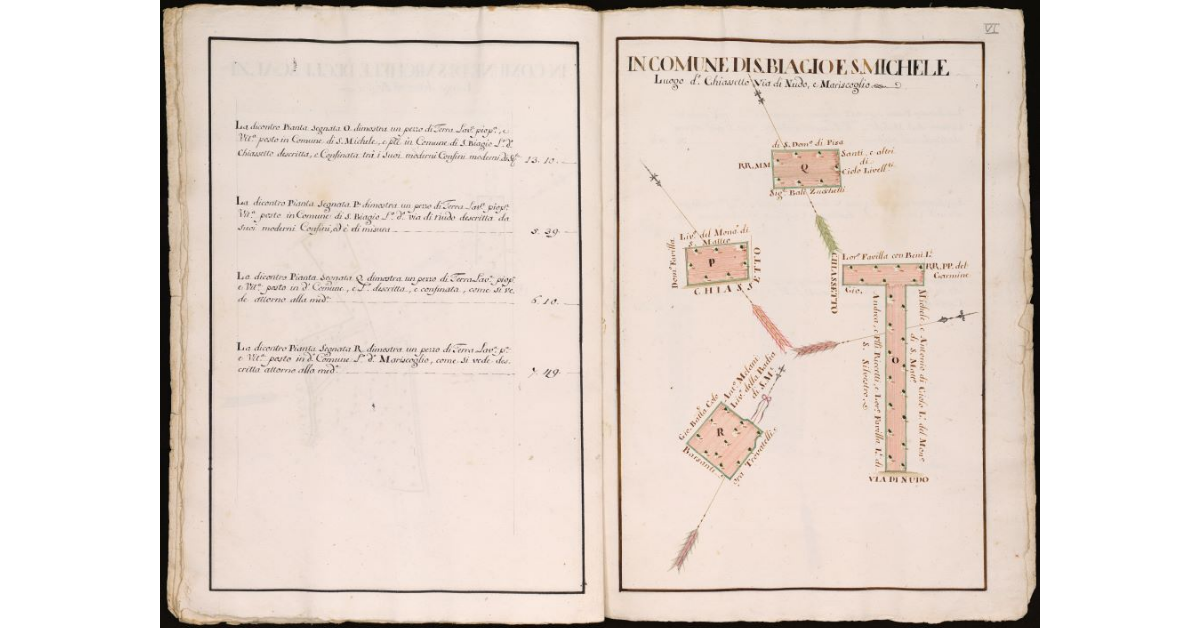 La dicontro Pianta Segnata O. dimostra un pezzo di Terra Lav.ª piop.ª, e
Vit.ª posto in Comune di S. Michele, e p.te in Comune di S. Biagio L.º d.º
Chiassetto descritta, e Confinata trà i Suoi moderni Confini 13. 10.
La dicontro Pianta Segnata P. dimostra un pezo di Terra Lav.ª piop.ª
Vit.ª posto in Comune di S. Biagio L.º d.º via di Nudo descritta da
Suoi moderni Confini, ed è di misura 3. 29.
La dicontro Pianta Segnata Q. dimostra un pezzo di Terra Lav.ª piop.ª
e Vit.ª posto in d.º Comune, e L.º descritta, e confinata, come si ve,
de attorno alla med.ª 6. 10.
La dicontro Pianta Segnata R. dimostra un pezo di Terra Lav.ª p.ª
e Vit.ª posto in d.º Comune L.º d.º Mariscoglio, come si vedi des,
critta attorno alla med.ª 7. 49.
VI
IN COMUNE DI S. BIAGIO E S. MICHELE
Luogo d.º Chiassetto Via di Nudo, e Mariscoglio
di S. Dom.º di Pisa
RR. MM
Q
Santi, e altri
di
Ciolo Livell.ri
Sig.ª Ball. Zucchelli
Liv.º del Mona.º di
S. Matteo
Dom.º Favilla
P
CHIASSETTO
CHIASSETTO
Lor.º Favilla con Beni L.º
RR. PP. del
Carmine
Gio,
Andrea, e Flli Pacetti, e Lor.º Favilla L.º di
S. Silvestro
O
Michele e Antonio di Ciolo L.º del Mon.º
di S. Matt.º
VIA DI NUDO
Ant.º Milani
Liv.º della Badia
di S. M.
Gio. Batta Ceo
R
Barsanti
Trovatelli